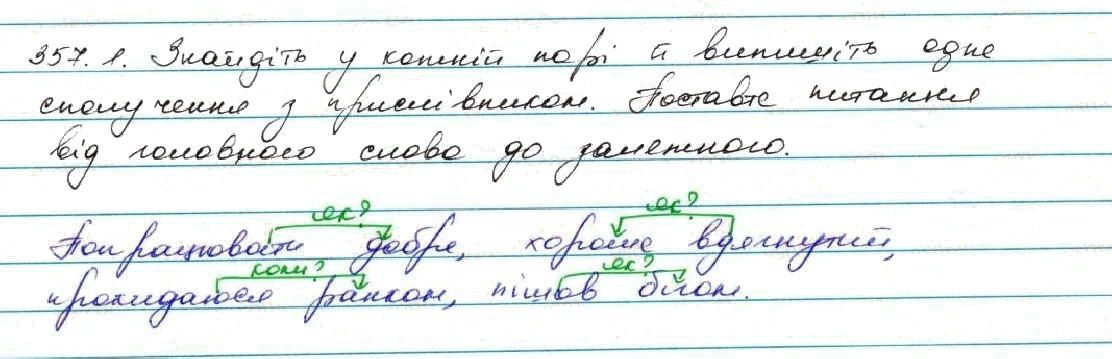 357.1. Знайдіть у кожній парі й випишіть одне
сполучення з прислівником. Поставте питання
від головного слова до залежного.
як? як?
Попрацювати добре, хороше вдягнутий,
коли? як?
прокидаюся ранком, пішов бігом.